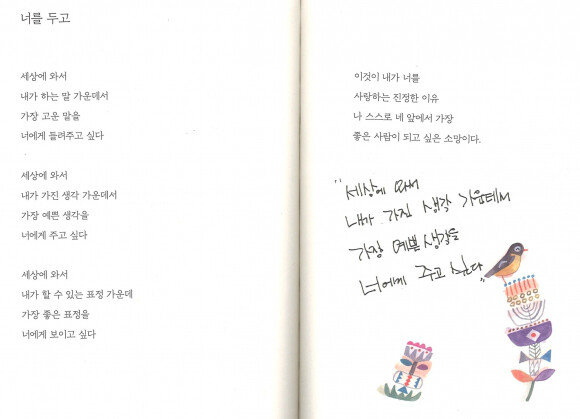 너를 두고
세상에 와서
내가 하는 말 가운데서
가장 고운 말을
너에게 들려주고 싶다
세상에 와서
내가 가진 생각 가운데서
가장 예쁜 생각을
너에게 주고 싶다
세상에 와서
내가 할 수 있는 표정 가운데
가장 좋은 표정을
너에게 보이고 싶다
이것이 내가 너를
사랑하는 진정한 이유
나 스스로 네 앞에서 가장
좋은 사람이 되고 싶은 소망이다.
"세상에 와서
내가 가진 생각 가운데서
가장 예쁜 생각을
너에게 주고 싶다"